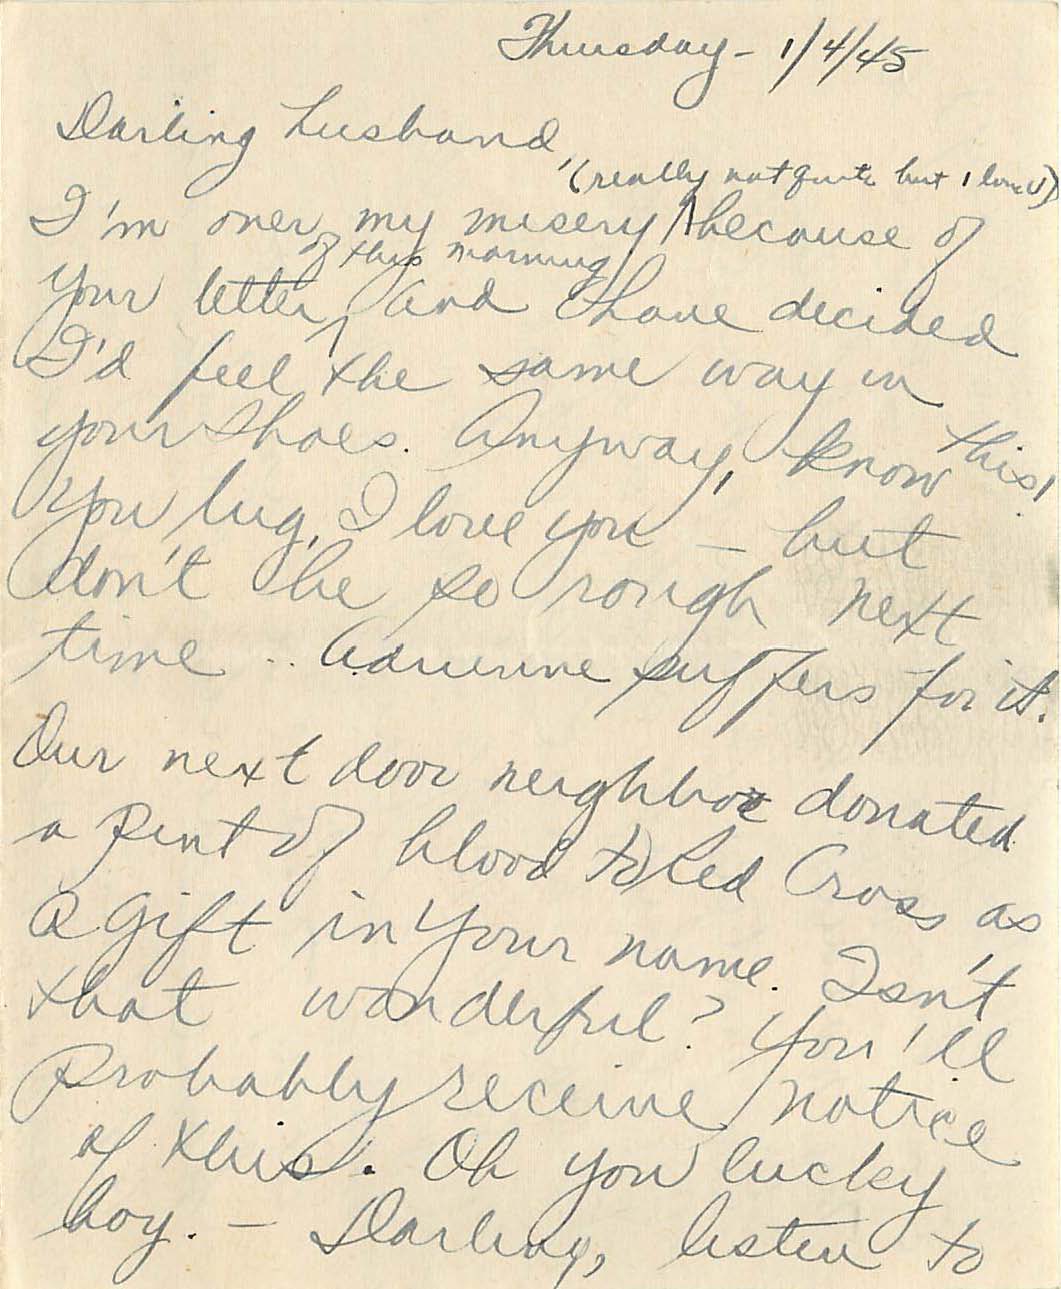 Thursday - 1/4/45
Darling husband,
(really not quite but I love U)
I'm over my misery ^ because of
of this morning
your letter, ^ and I have decided
I'd feel the same way in
your shoes. Anyway, know this,
you lug, I love you - but
don't be so rough next
time .. Adrienne suffers for it.
Our next door neighbor donated
a pint of blood to Red Cross as
a gift in your name. Isn't
that wonderful? You'll
probably receive notice
of this. Oh you lucky
boy. - Darling, listen to